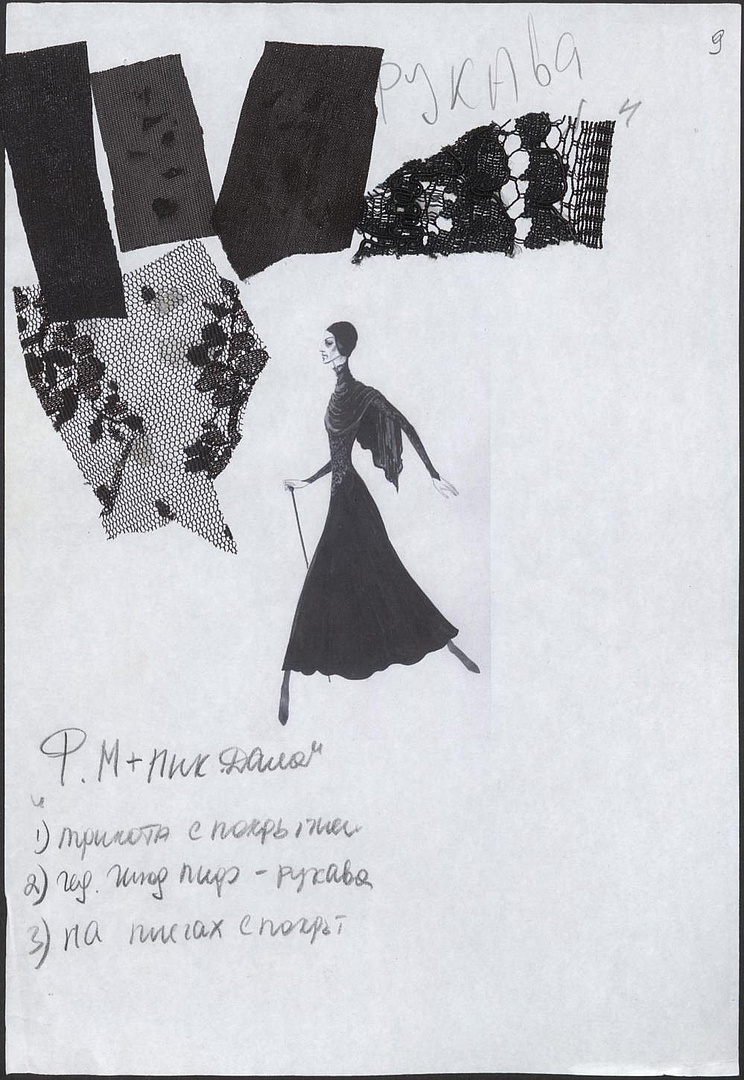 9
рукава
Ф. М + пик Дама"
1) трикота с покрытием
2) - рукава
3) на плечах с покрыт